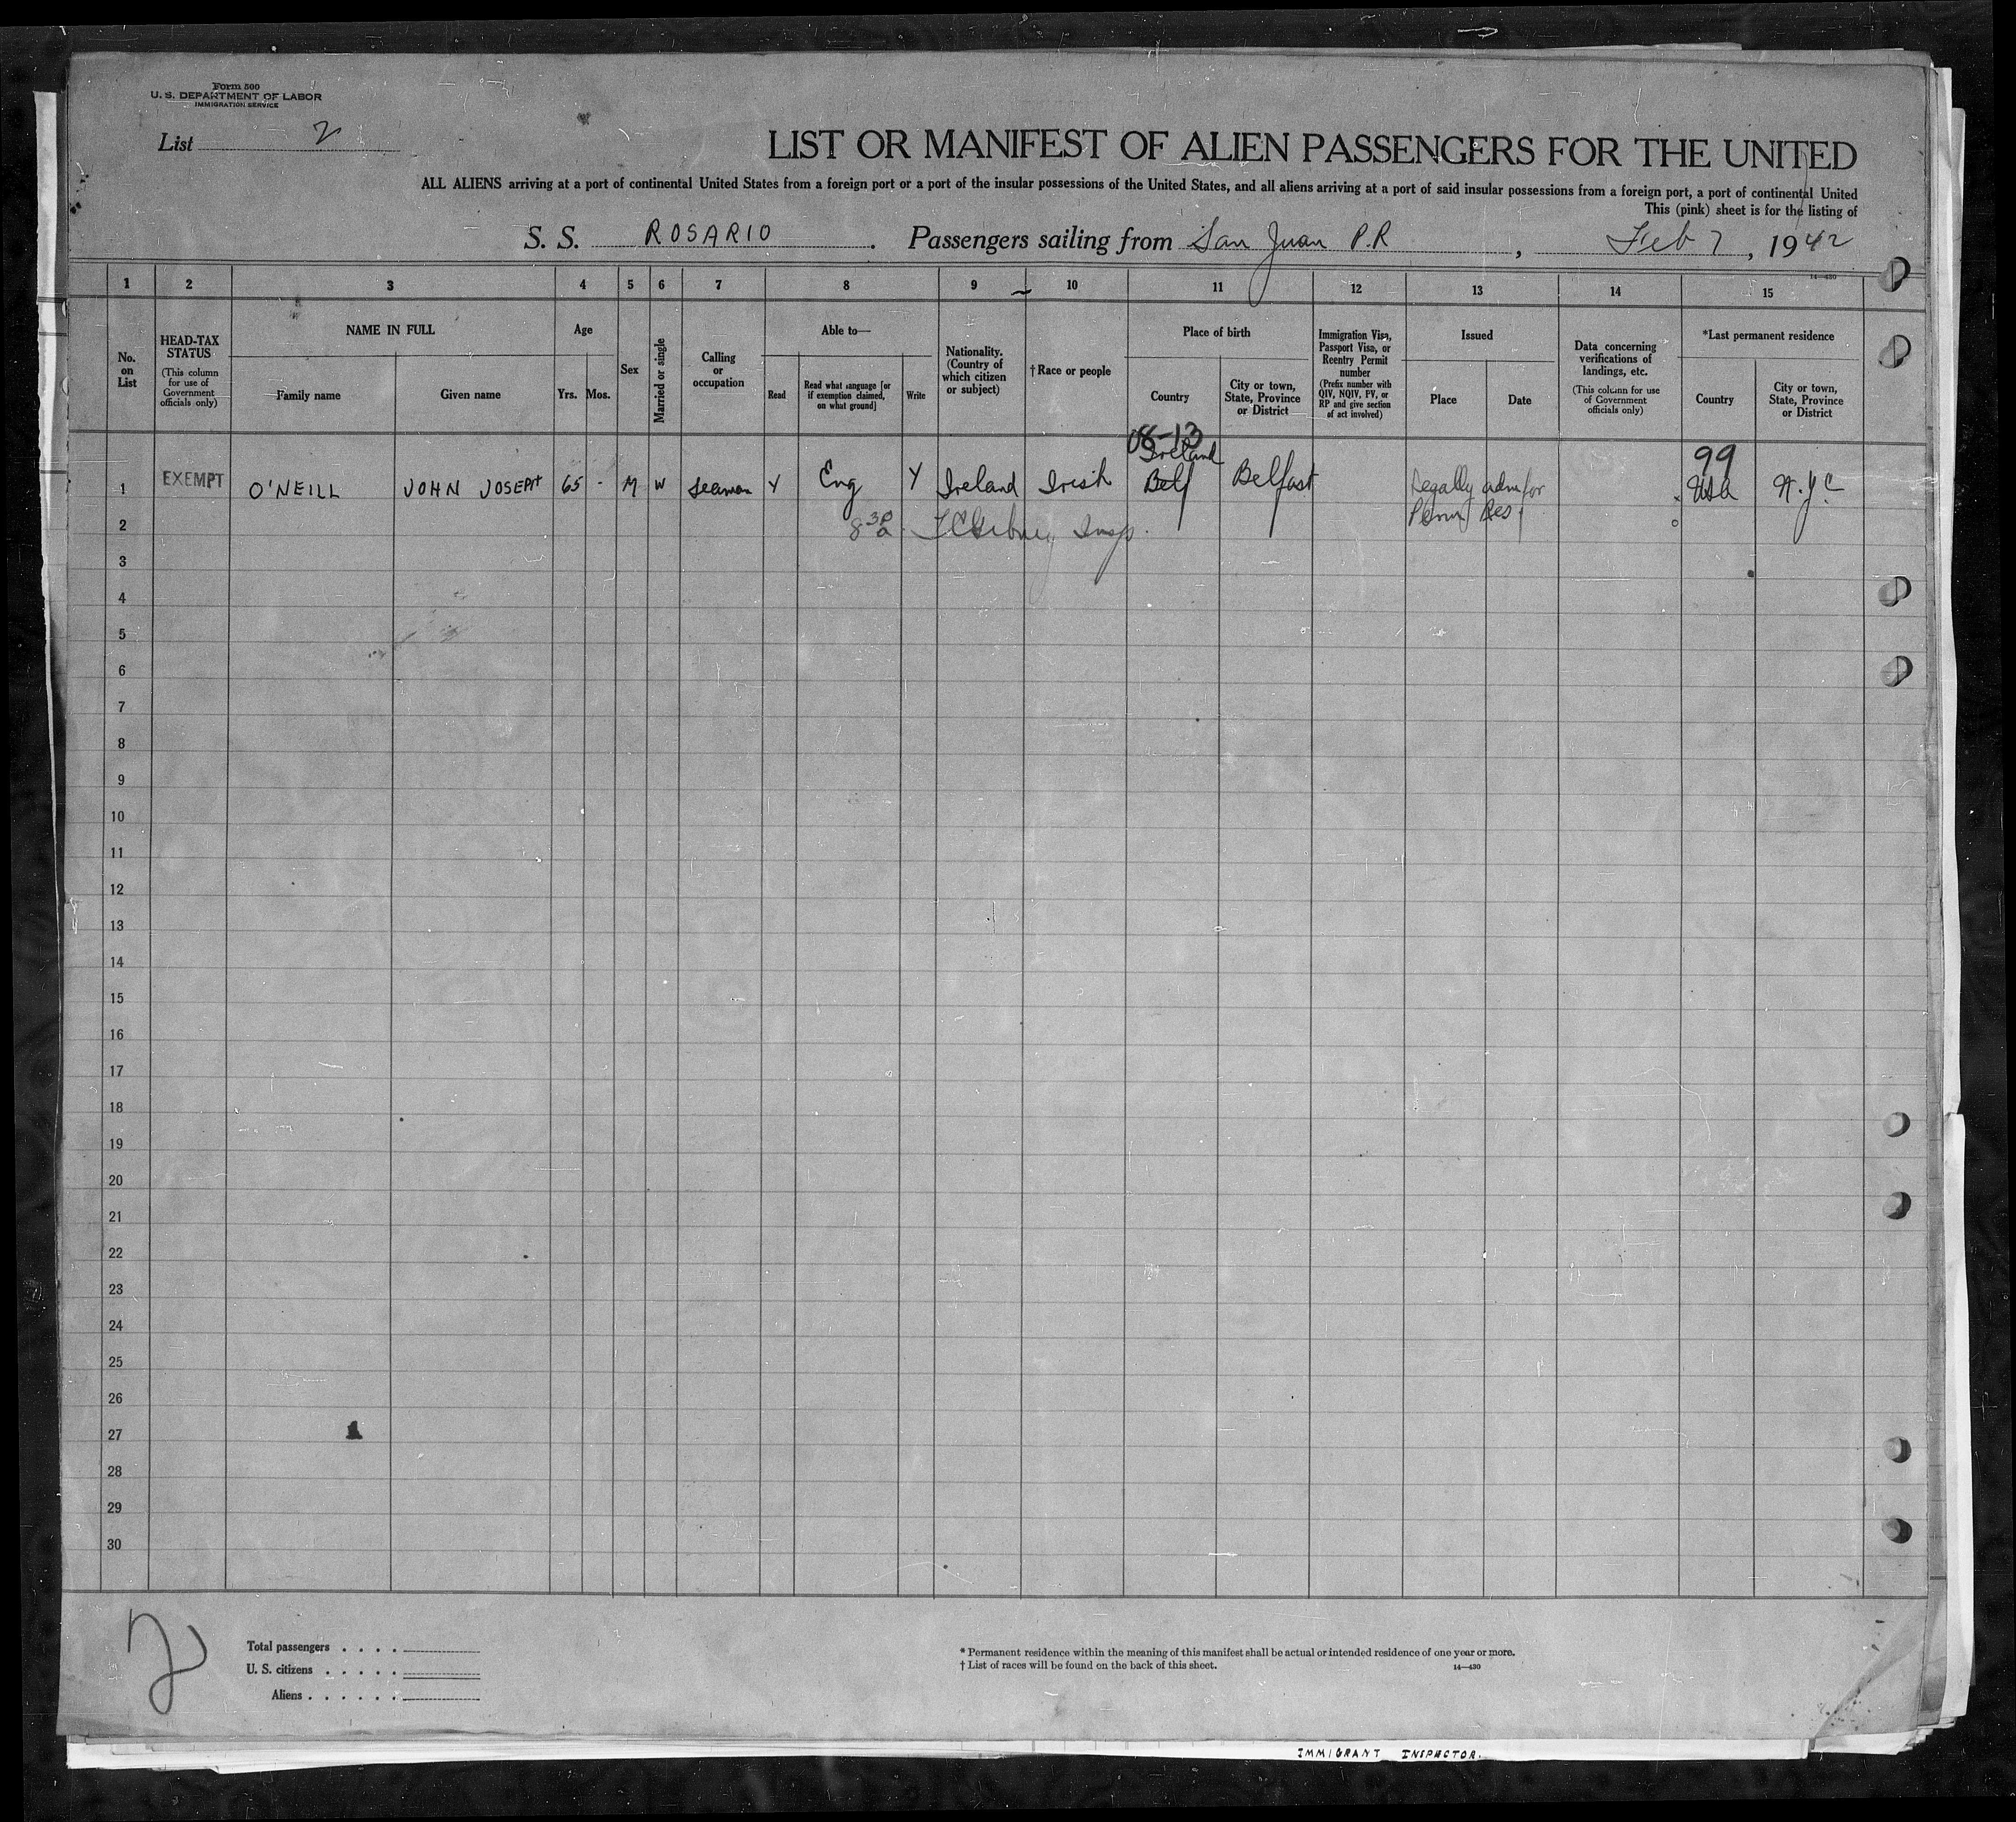 Form 500
U. S. DEPARTMENT OF LABOR
IMMIGRATION SERVICE
List 2
LIST OR MANIFEST OF ALIEN PASSENGERS FOR THE UNITED
ALL ALIENS arriving at a port of continental United States from a foreign port or a port of the insular possessions of the United States, and all aliens arriving at a port of said insular possessions from a foreign port, a port of continental United
This (pink) sheet is for the listing of
S. S. ROSARIO. Passengers sailing from San Juan P.R, Feb 7, 1942
14—430
1 2 3 4 5 6 7 8 9 10 11 12 13 14 15
No. on List
HEAD-TAX STATUS
(This column for use of Government officials only)
NAME IN FULL
Family name
Given name
Age
Yrs. Mos.
Sex
Married or single
Calling or occupation
Able to—
Read
Read what language [or if exemption claimed, on what ground]
Write
Nationality. (Country of which citizen or subject)
†Race or people
Place of birth
Country
City or town, State, Province or District
Immigration Visa, Passport Visa, or Reentry Permit number
(Prefix number with QIV, NQIV, PV, or RP and give section of act involved)
Issued
Place
Date
Data concerning verifications of landings, etc.
(This column for use of Government officials only)
*Last permanent residence
Country
City or town, State, Province or District
08-13
Ireland
99
1 EXEMPT O'NEILL JOHN JOSEPH 65 - M W Seaman Y Eng Y Ireland Irish Belf Belfast Legally adm for USA N.Y.C
Perm Res
2 Insp.
3
4
5
6
7
8
9
10
11
12
13
14
15
16
17
18
19
20
21
22
23
24
25
26
27
28
29
30
2
Total passengers . . . .
U. S. citizens . . . . .
Aliens . . . . . .
* Permanent residence within the meaning of this manifest shall be actual or intended residence of one year or more.
† List of races will be found on the back of this sheet.
14—430
IMMIGRANT INSPECTOR.